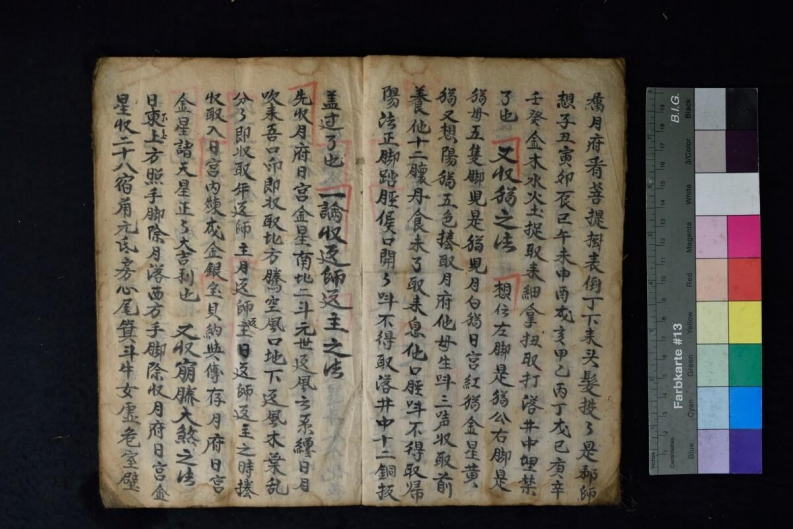 為月府看菩提樹表倒丁下来头髮披了是郡師
想子丑寅卯辰巳午未申酉戌亥甲乙丙丁戊己庚辛
壬癸金木水火土捉取来細拿扭取打落井中埋禁
了也 又收鵝之法 想住左脚是鵝公右脚是
鵝母五隻脚見是鵝見月白鵝日宮紅鵝金星黄
鵝又想陽鵝五色捧取月府他母生吽三声收取前
養他十二 丹食未了取未息他口 吽不得取帰
陽法正脚踏 候口開了吽不得取落井中十二銅板
盖过了也 一論收返師返主之法
先收月府日宮金星南地二斗元世返風云系纏日月
吹来吾口中即收取地方騰空風口地下返風木葉乱
分了即收取年返師主月返師主日返師返主之時捧
收取入日宮内煉成金銀宝貝納與傳存月府日宮
金星諸天星正了大吉利也 又收崩騰大煞之法
日東上方照手脚除月落西方手脚除收月府日宮金
星収二十八宿角元氐房心尾箕斗牛女虚危室壁
B.I.G.
Farbkarte #13
Blue
Cyan
Green
Yellow
Red
Magenta
White
3/Color
Black